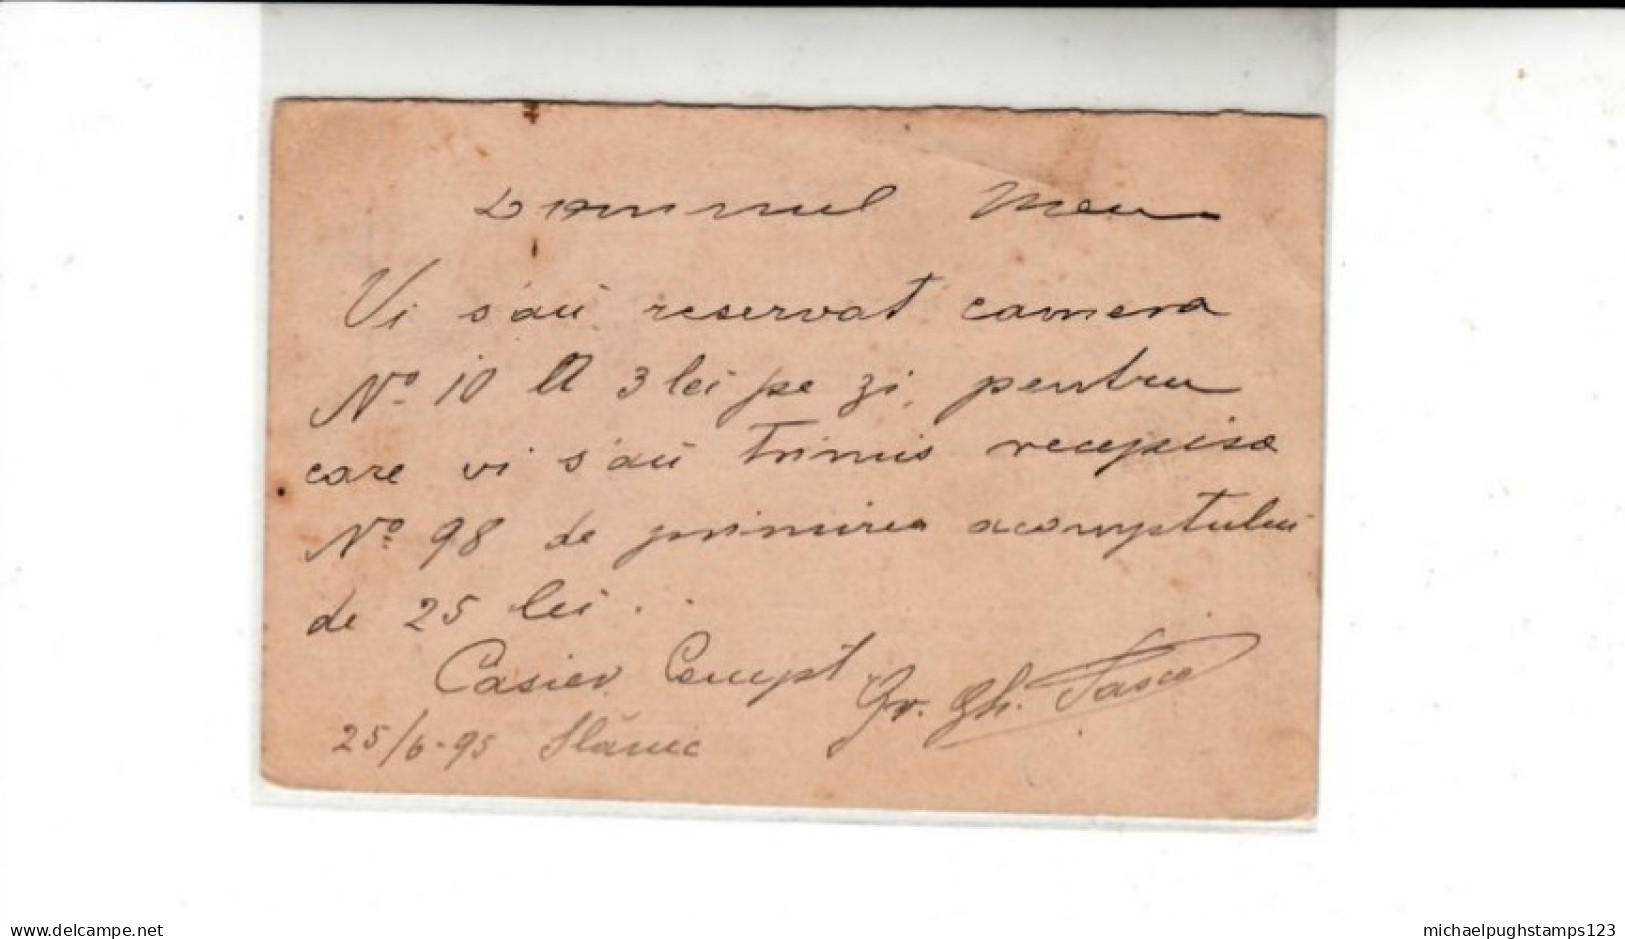 Domnul Meu
Vi s'aŭ reservat camera
No 10 A 3 lei pe zi, pentru
care vi s'aŭ trimis recepisa
No 98 de primirea acomptului
de 25 lei.
Casier Compt. Gr. Gh. Pasco
25/6-95 Slănic
www.delcampe.net
michaelpughstamps123